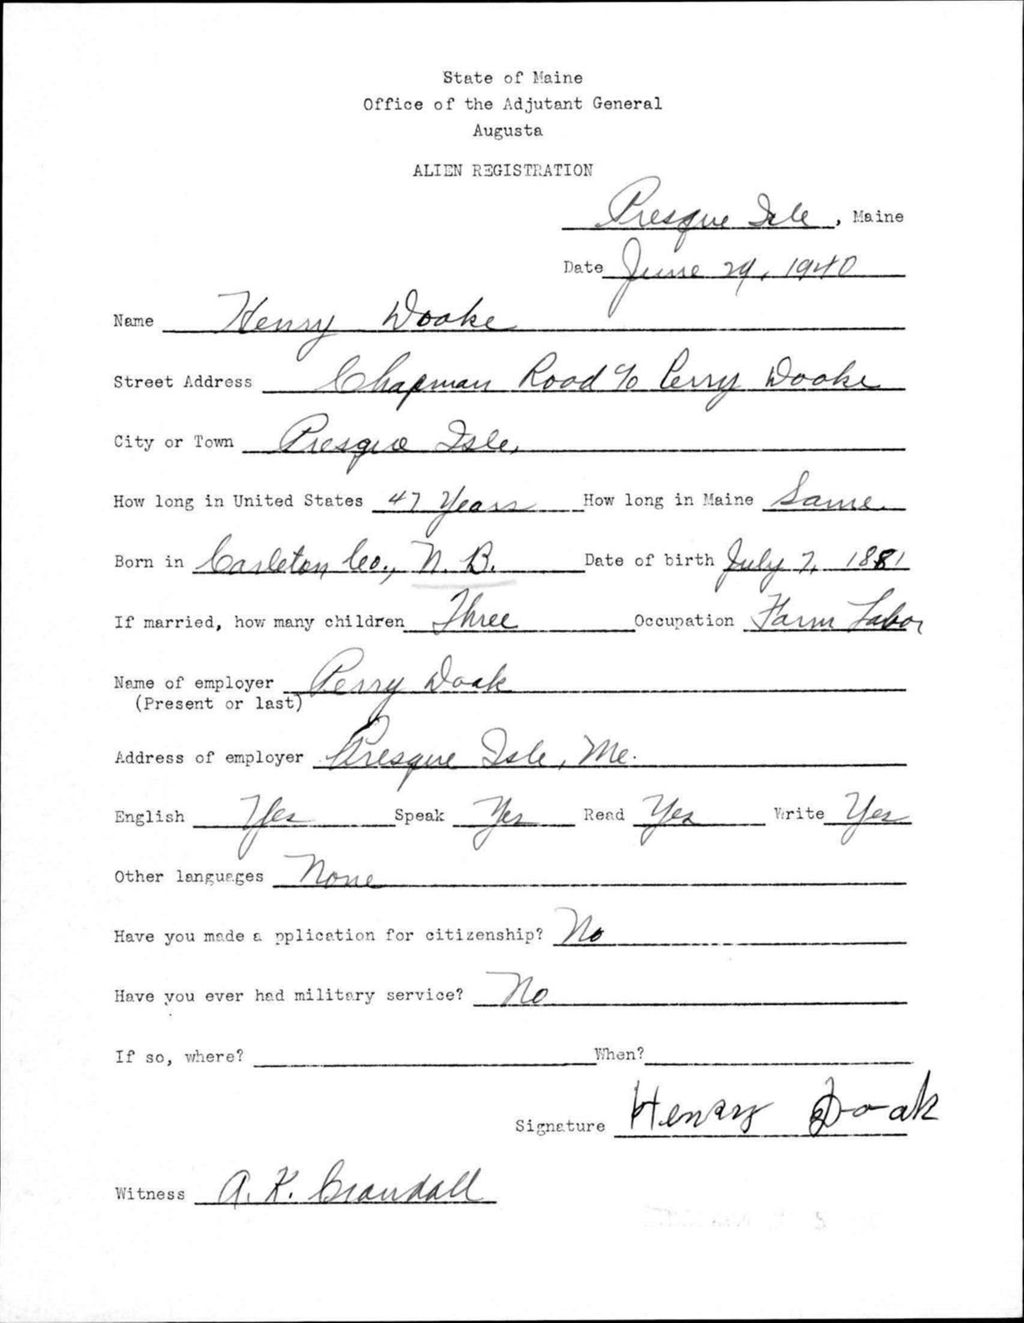 State of Maine
Office of the Adjutant General
Augusta
ALIEN REGISTRATION
Presque Isle, Maine
Date June 29, 1940
Name Henry Doake
Street Address Chapman Road c/o Perry Doake
City or Town Presque Isle,
How long in United States 47 Years How long in Maine Same
Born in Carleton Co., N. B. Date of birth July 7, 1881
If married, how many children Three Occupation Farm Labor
Name of employer Perry Doak
(Present or last)
Address of employer Presque Isle, Me.
English Yes Speak Yes Read Yes Write Yes
Other languages None
Have you made a pplication for citizenship? No
Have you ever had military service? No
If so, where? When?
Signature Henry Doak
Witness A. K. Crandall